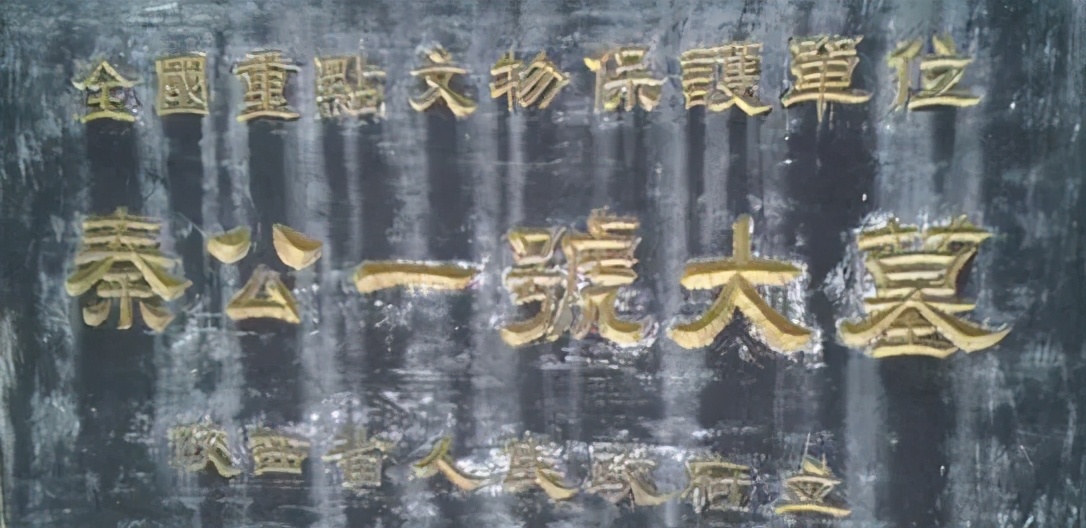 全國重點文物保護單位
秦公一號大墓
陝西省人民政府立